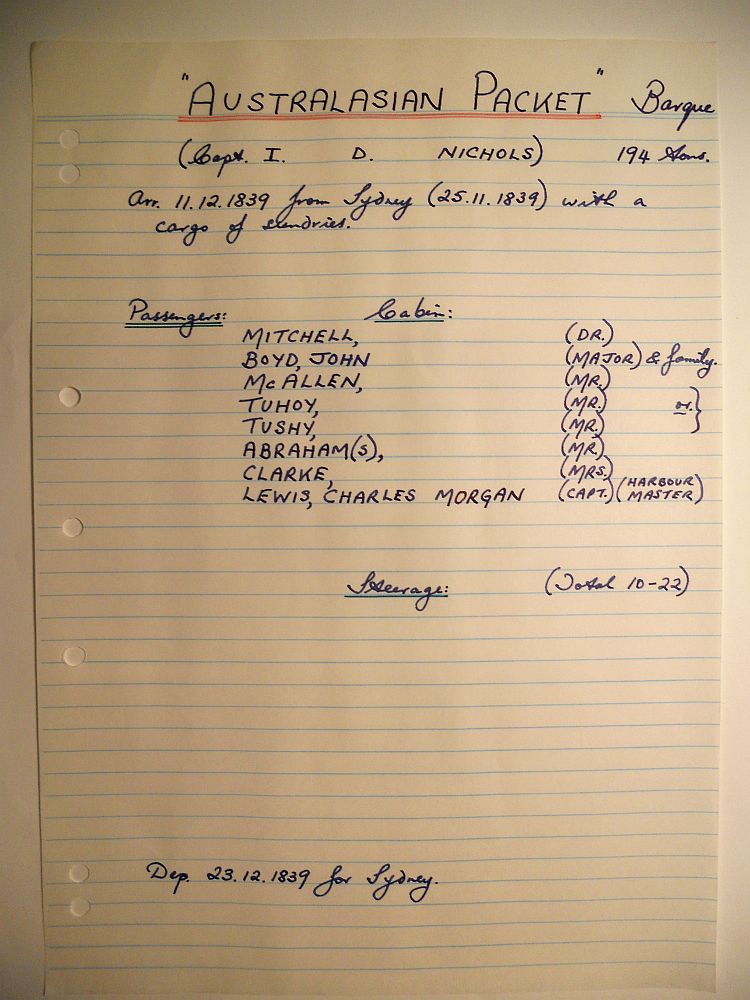 "AUSTRALASIAN PACKET" Barque
(Capt. I. D. NICHOLS) 194 tons.
Arr. 11.12.1839 from Sydney (25.11.1839) with a
cargo of sundries.
Passengers: Cabin:
MITCHELL, (DR.)
BOYD, JOHN (MAJOR) & family.
McALLEN, (MR.)
TUHOY, (MR.) or }
TUSHY, (MR.)
ABRAHAM(S), (MR.)
CLARKE, (MRS.)
LEWIS, CHARLES MORGAN (CAPT.) (HARBOUR MASTER)
Steerage: (Total 10-22)
Dep. 23.12.1839 for Sydney.